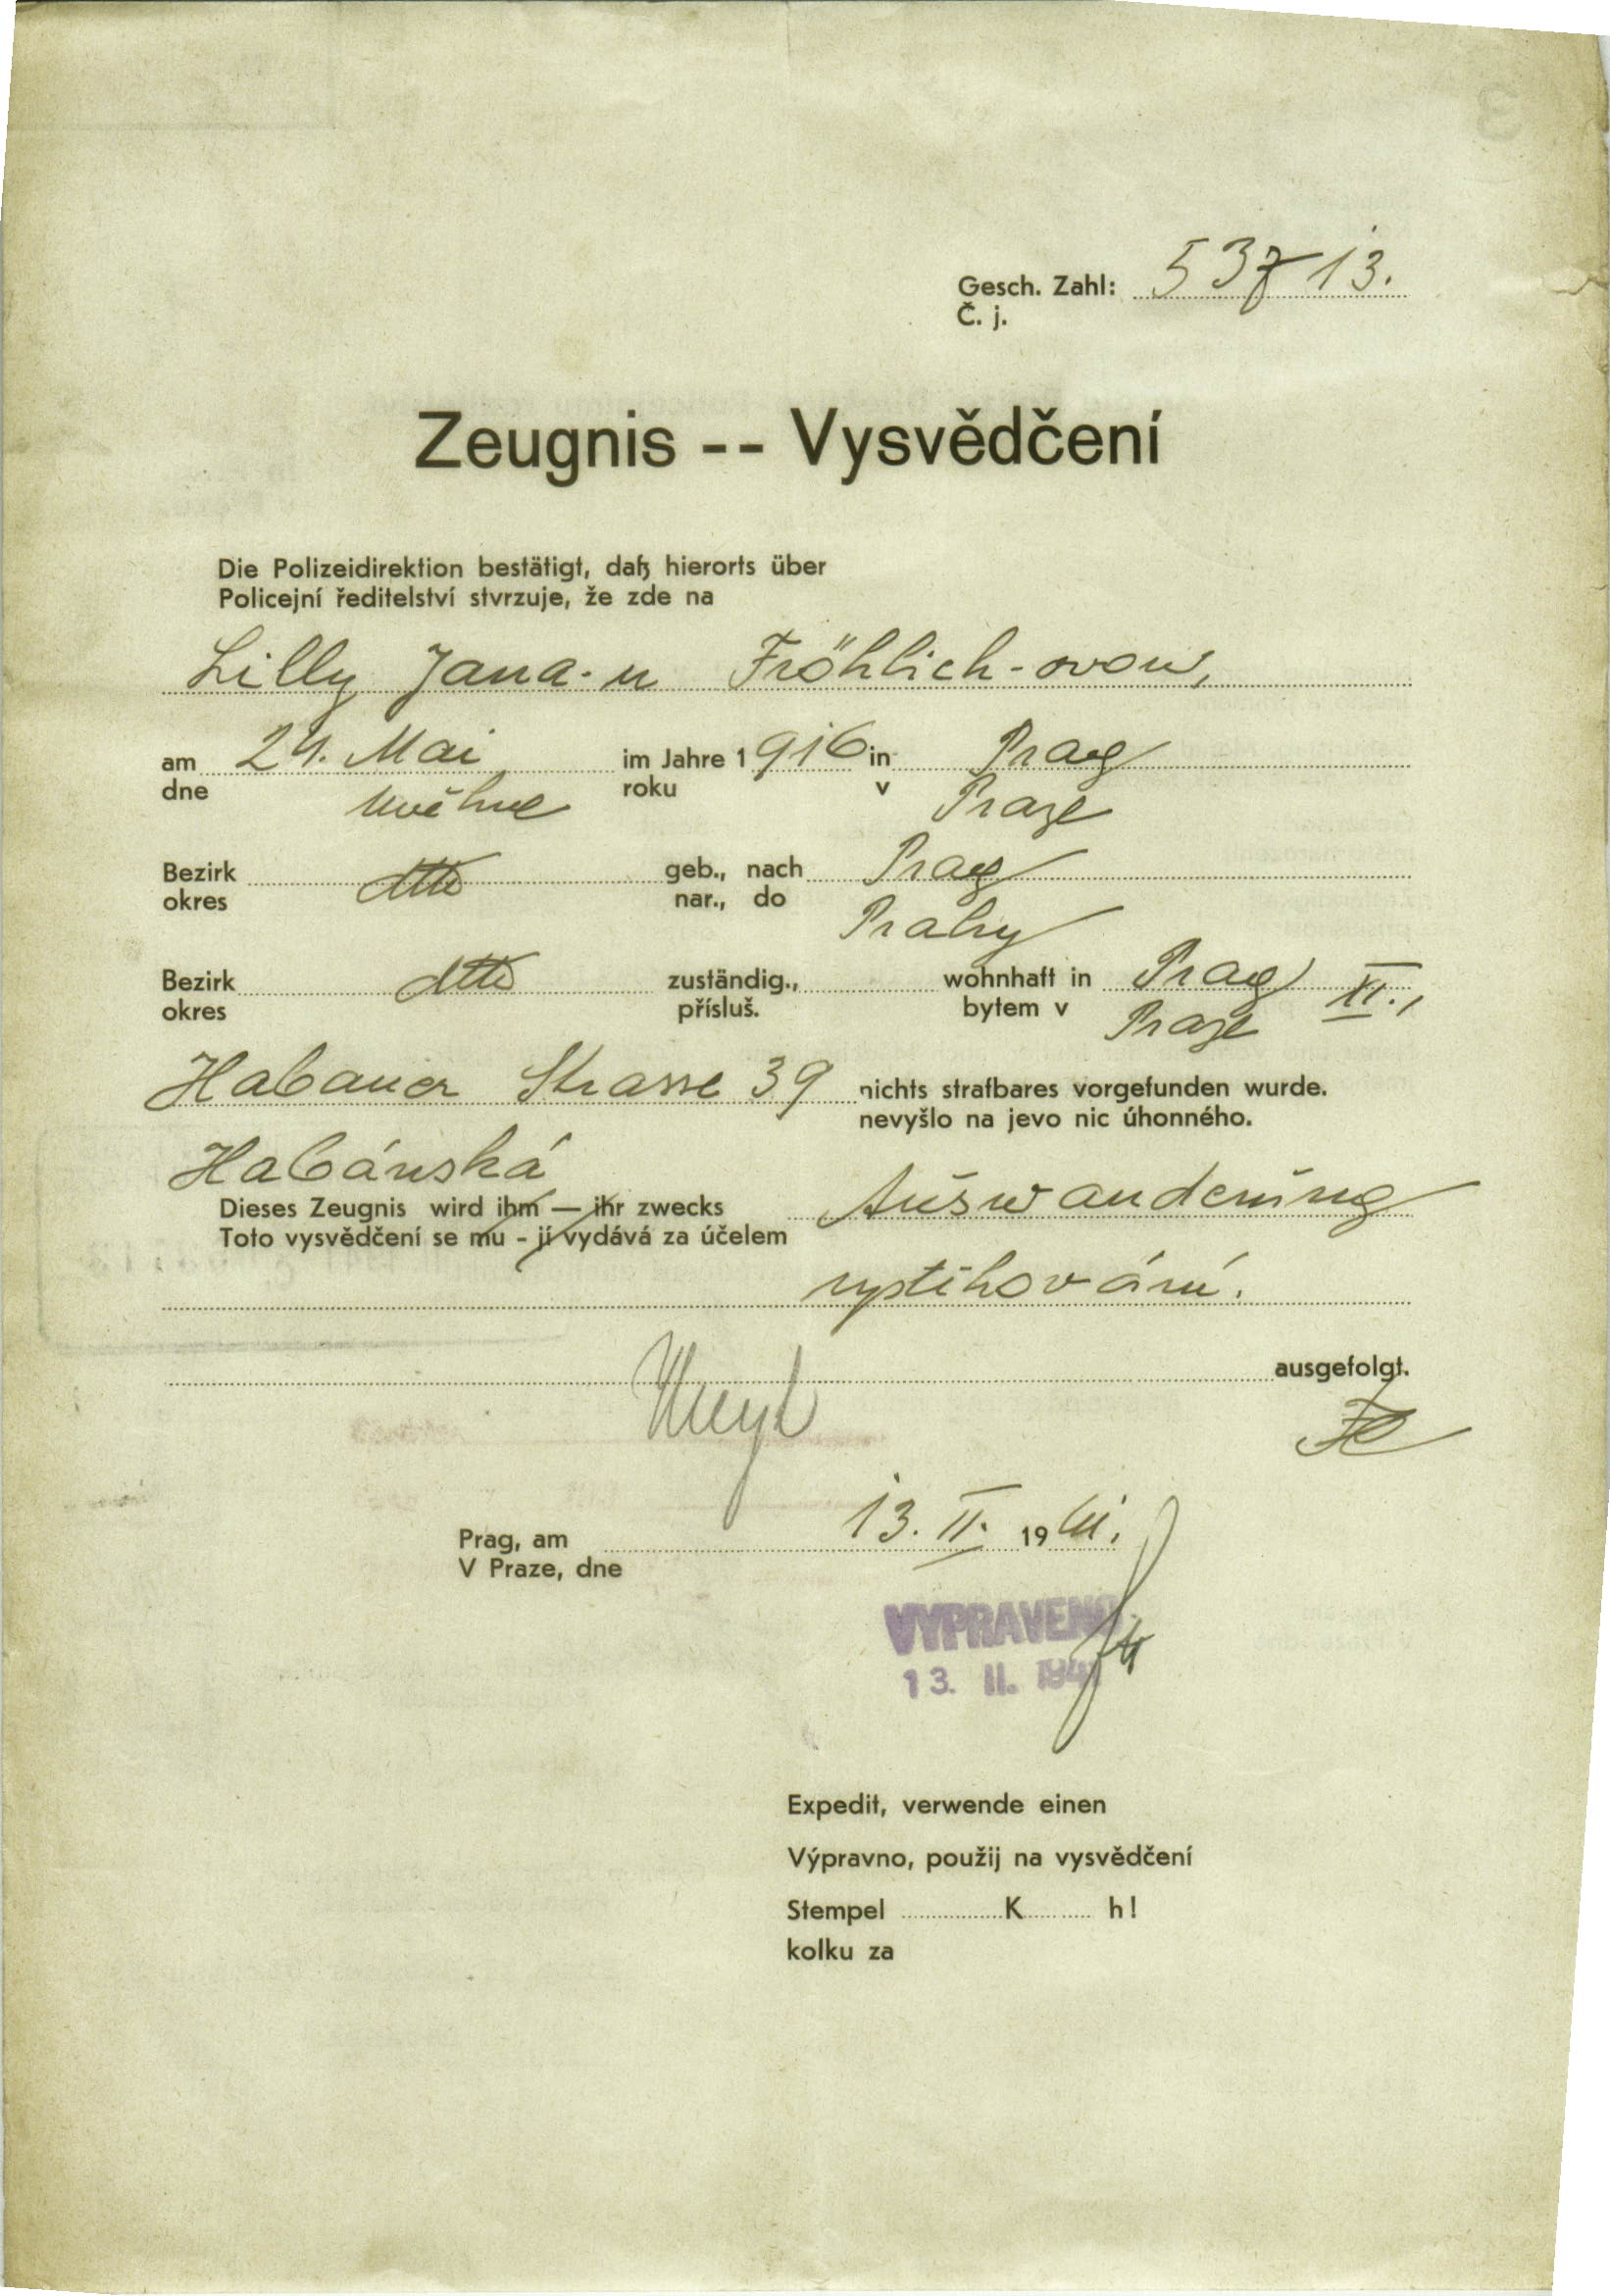 Gesch. Zahl: 53713.
Č. j.
Zeugnis -- Vysvědčení
Die Polizeidirektion bestätigt, daß hierorts über
Policejní ředitelství stvrzuje, že zde na
Lilly Jana-u Fröhlich-ovou,
am 24. Mai im Jahre 1916 in Prag
dne května roku v Praze
Bezirk dtto geb., nach Prag
okres nar., do Prahy
Bezirk dtto zuständig., wohnhaft in Prag XI.,
okres přísluš. bytem v Praze
Habauer Strasse 39 nichts strafbares vorgefunden wurde.
nevyšlo na jevo nic úhonného.
Habánská
Dieses Zeugnis wird ihm — ihr zwecks Auswanderung
Toto vysvědčení se mu - jí vydává za účelem
vystěhování.
ausgefolgt.
Prag, am 13. II. 1941.
V Praze, dne
VYPRAVENO
13. II. 1941
Expedit, verwende einen
Výpravno, použij na vysvědčení
Stempel K h!
kolku za